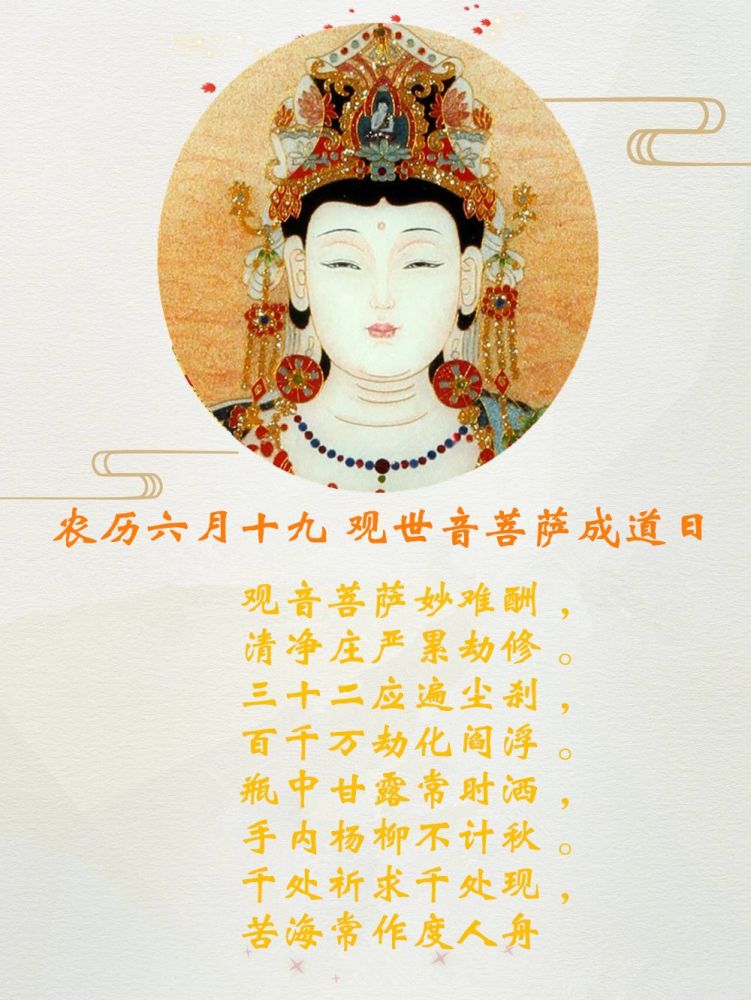 农历六月十九 观世音菩萨成道日
观音菩萨妙难酬，
清净庄严累劫修。
三十二应遍尘刹，
百千万劫化阎浮。
瓶中甘露常时洒，
手内杨柳不计秋。
千处祈求千处现，
苦海常作度人舟